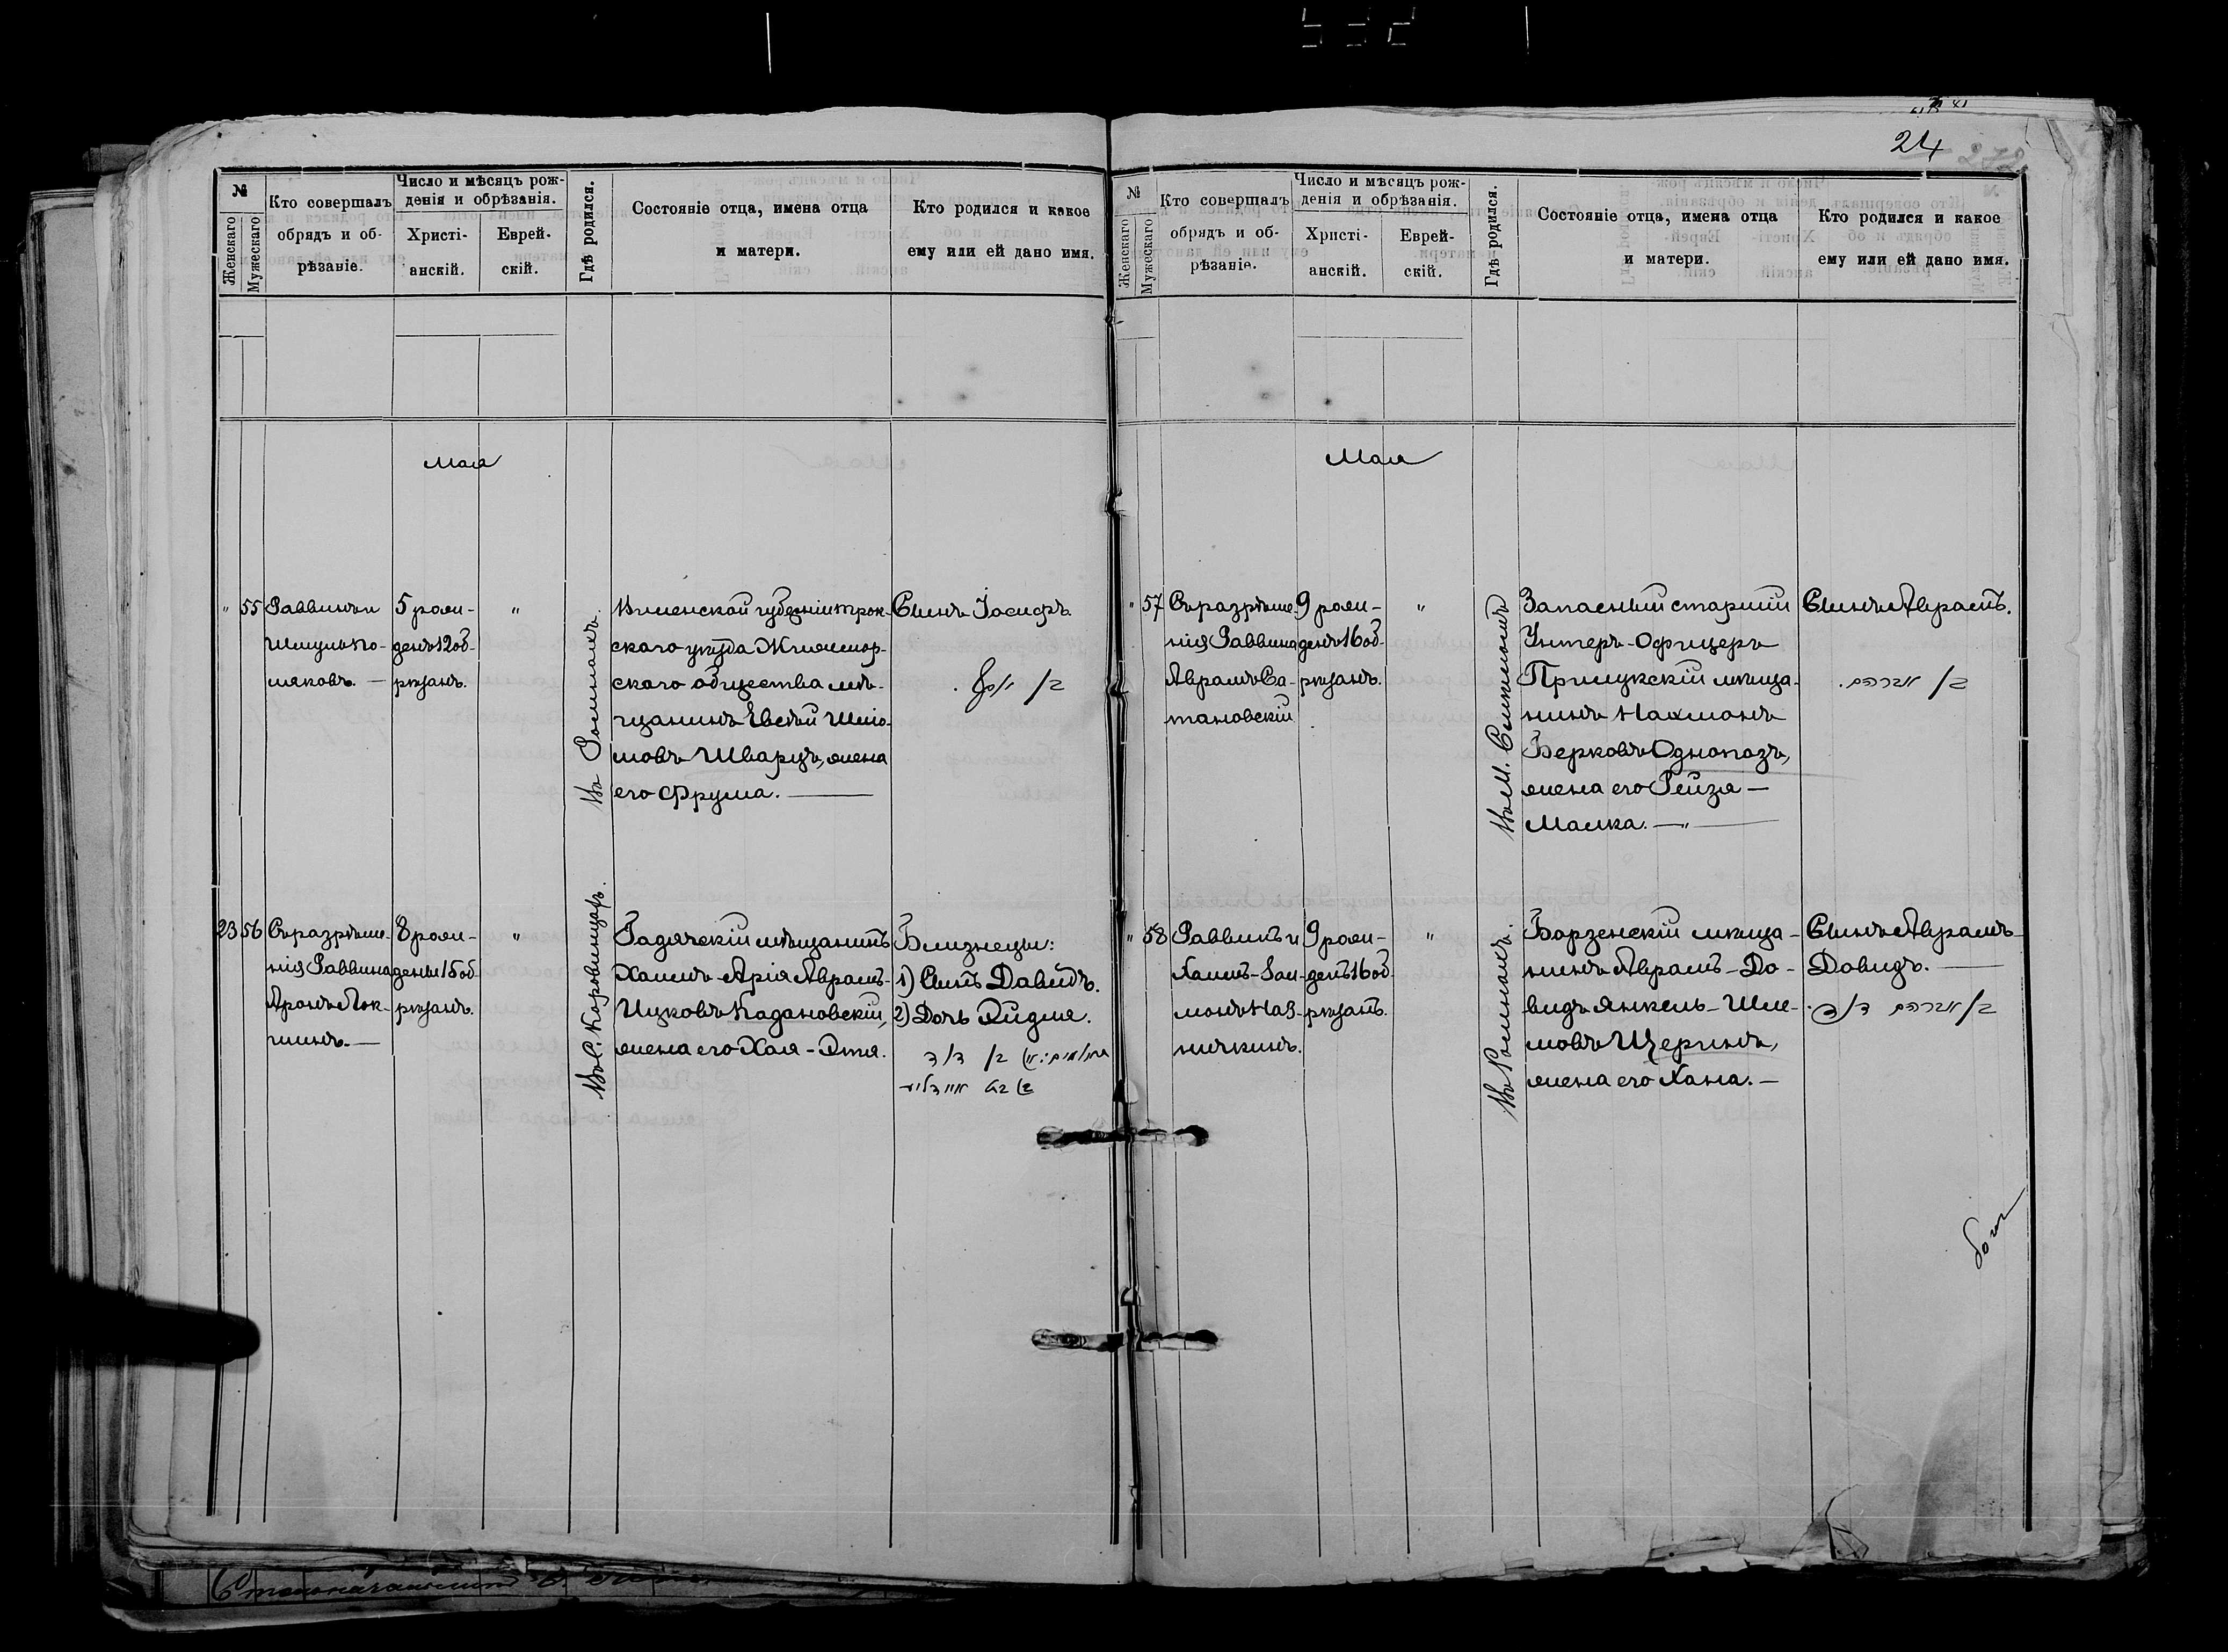 24
№
Женскаго
Мужескаго
Кто совершалъ
обрядъ и об-
рѣзаніе.
Число и мѣсяцъ рож-
денія и обрѣзанія.
Христі-
анскій.
Еврей-
скій.
Гдѣ родился.
Состояніе отца, имена отца
и матери.
Кто родился и какое
ему или ей дано имя.
Мая
" 55
Раввинъ и
Шмуль По-
ляковъ. —
5 рож-
денъ 12 об-
рѣзанъ.
"
Въ Ромнахъ.
Виленской губерніи трок-
скаго уѣзда Жижмор-
скаго общества мѣ-
щанинъ Евсѣй Шлio-
мовъ Шварцъ, жена
его Фрума. —
Сынъ Іосифъ.
23 56
Съ разрѣше-
нія Раввина
Аронъ Лок-
шинъ. —
8 рож-
дены 15 об
рѣзанъ.
"
Въ С. Коровинцахъ.
Гадячскій мѣщанинъ
Хаимъ-Арія Аврамъ-
Ицковъ Кадановскій,
жена его Хая-Этя.
Близнецы:
1) Сынъ Давидъ.
2) Дочь Эйдля.
№
Женскаго
Мужескаго
Кто совершалъ
обрядъ и об-
рѣзаніе.
Число и мѣсяцъ рож-
денія и обрѣзанія.
Христі-
анскій.
Еврей-
скій.
Гдѣ родился.
Состояніе отца, имена отца
и матери.
Кто родился и какое
ему или ей дано имя.
Мая
" 57
Съ разрѣше-
нія Раввина
Аврамъ Са-
тановскій
9 рож-
денъ 16 об-
рѣзанъ.
"
Запасный старшій
Унтеръ-Офицеръ
Прилукскій мѣща-
нинъ Нахманъ
Берковъ Однопозъ,
жена его Рейзя —
Малка. —
Сынъ Аврамъ.
ב/ אברהם.
" 58
Раввинъ и
9 рож-
денъ 16 об-
рѣзанъ.
"
Въ Ромнахъ.
Борзенскій мѣща-
нинъ Аврамъ-До-
видъ Янкель-Шле-
мовъ Щеринъ,
жена его Хана. —
Сынъ Аврамъ-
Довидъ. —